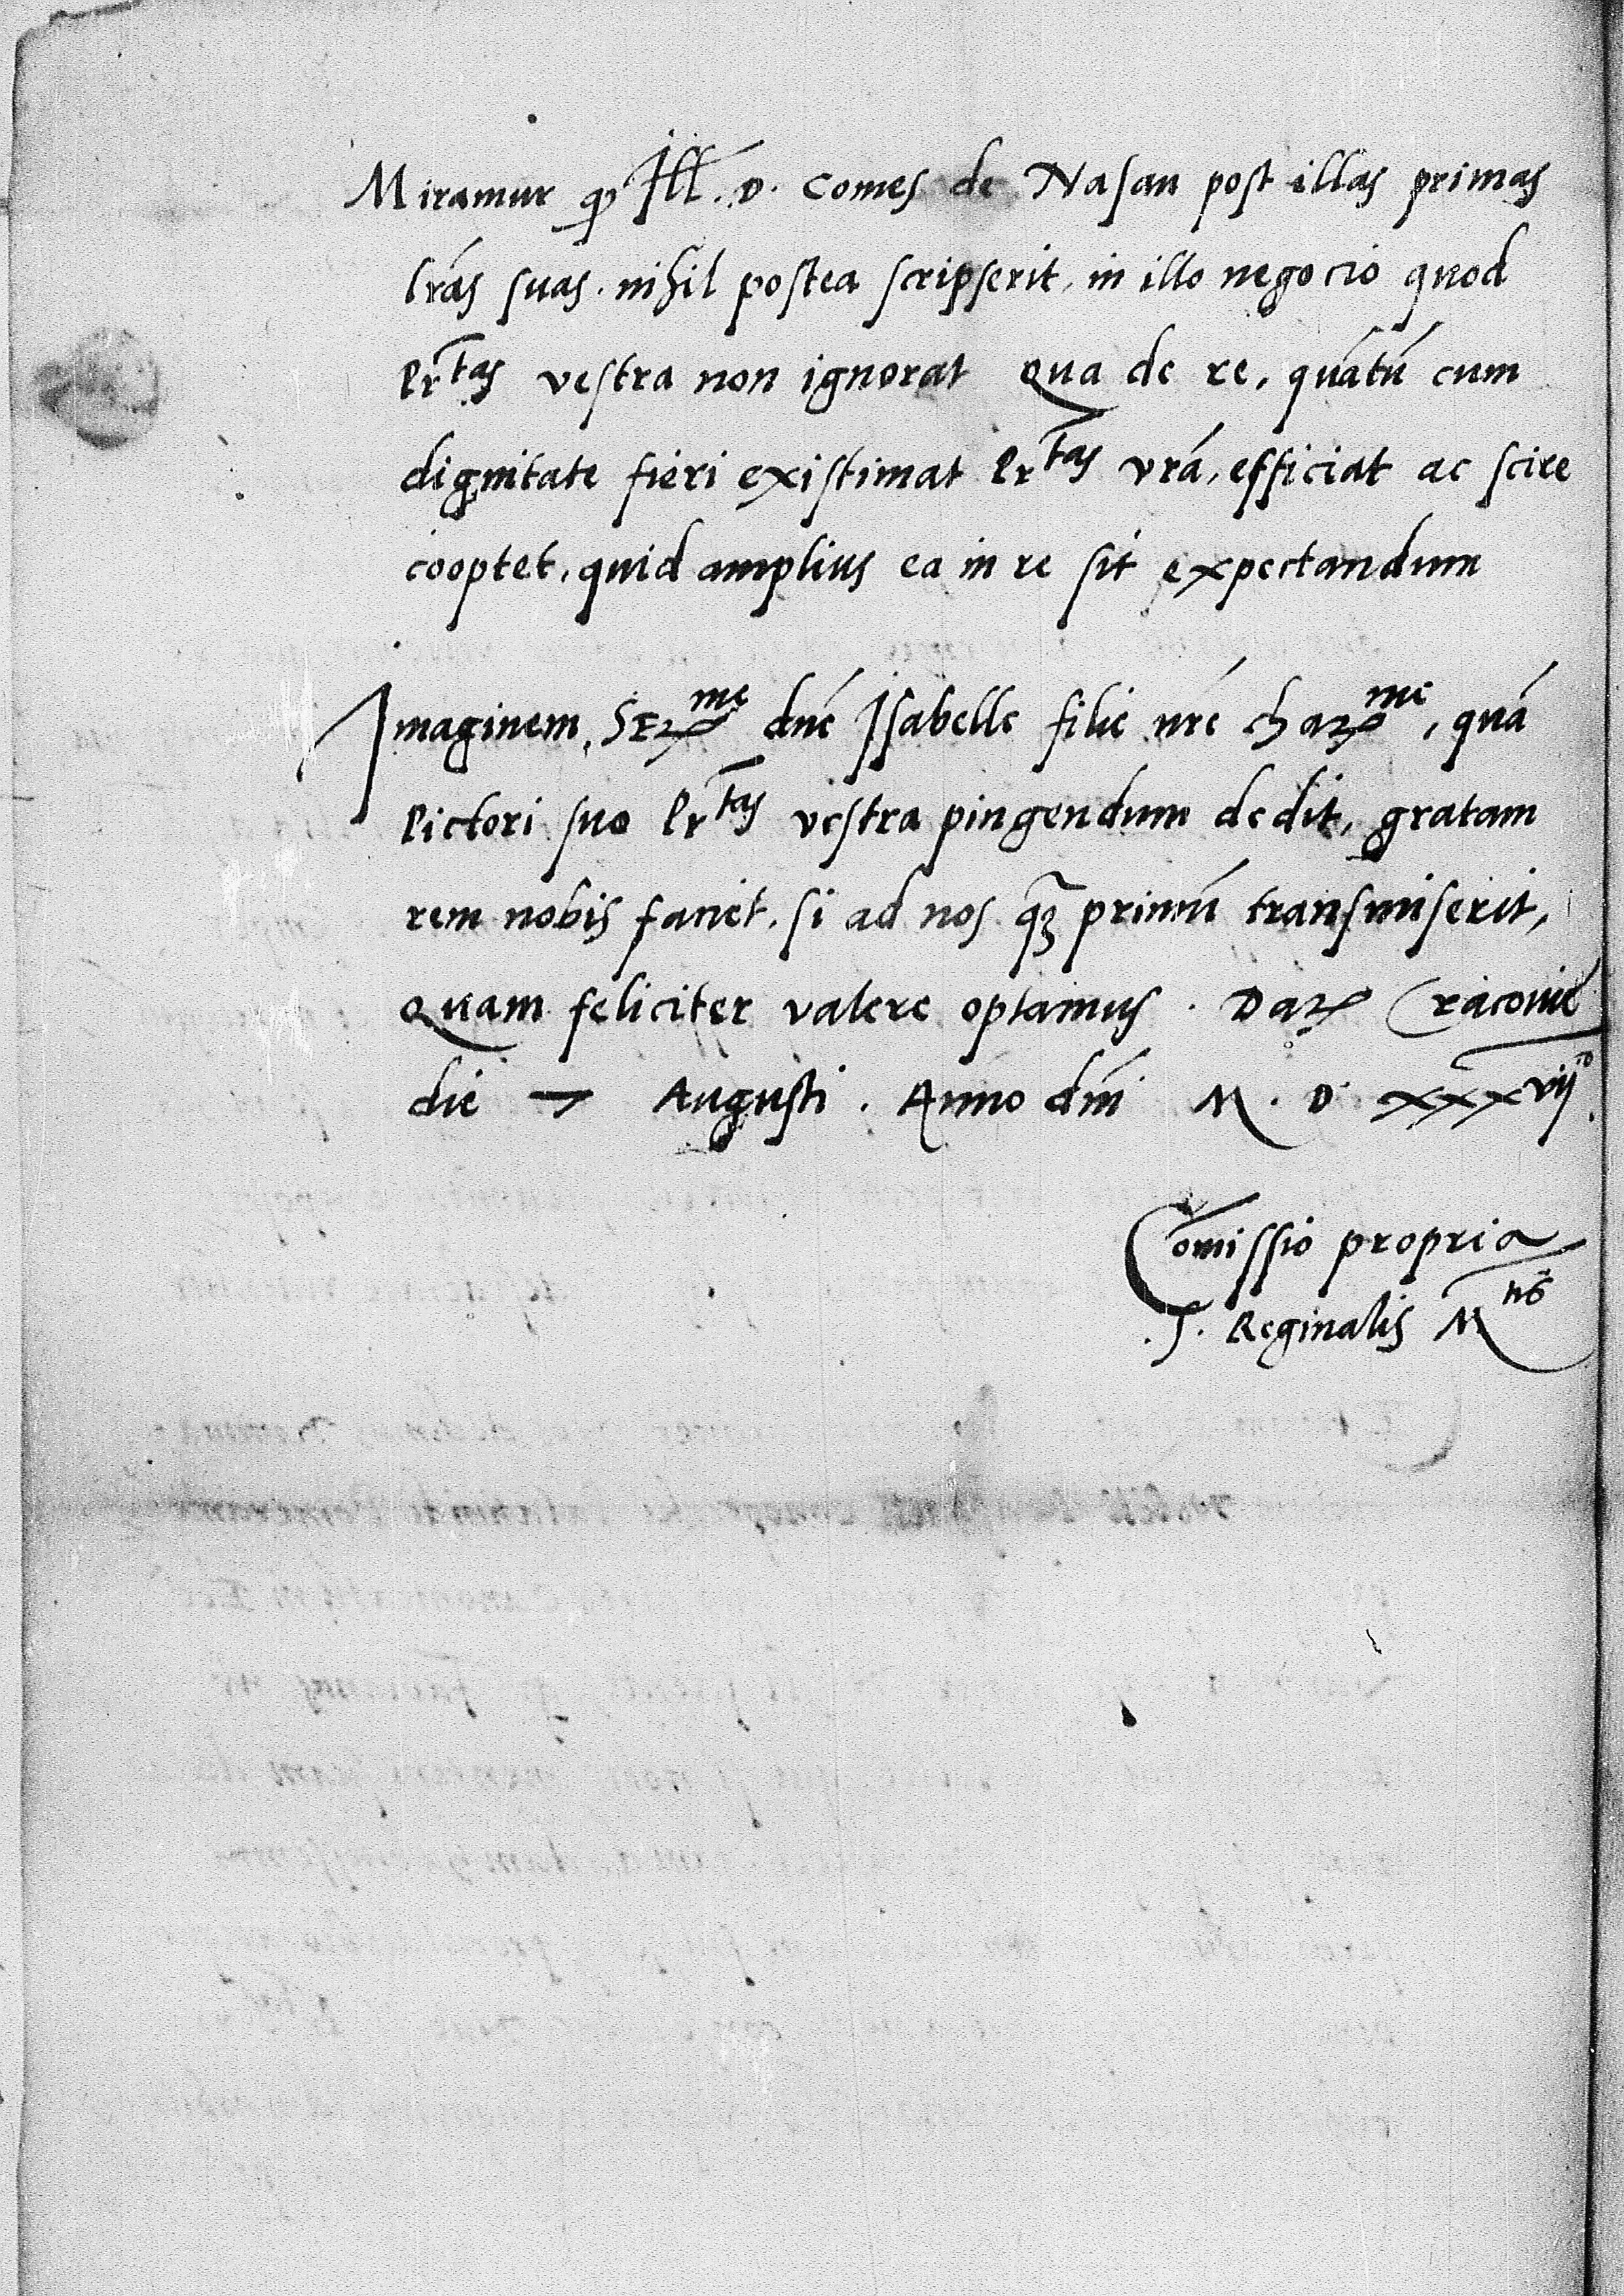 Miramur ꝙ Ill. D. Comes de Nasau post illas primas
lr̃as suas. nihil postea scripserit, in illo negocio quod
Pr̃tas vestra non ignorat Qua de re, quãtũ cum
dignitate fieri existimat Pr̃tas vrã, efficiat ac scire
cooptet, quid amplius ea in re sit expectandum
Imaginem SEꝝme dnẽ Isabelle filie nrẽ chaꝝme, quã
Pictori suo Pr̃tas vestra pingendum dedit, gratam
rem nobis faciet, si ad nos qꝫ̃ primũ transmiserit,
Quam feliciter valere optamus. Daꝝ Cracovie
die 7 Augusti. Anno dnĩ M. D. xxxvijo.
Cõmissio propria
S. Reginalis M